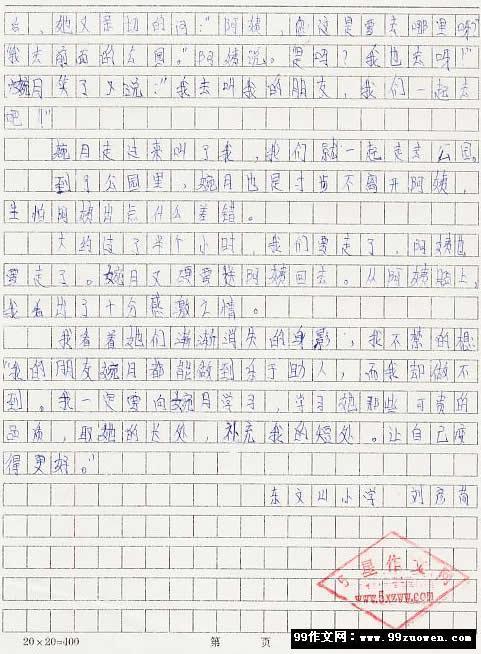 后，她又亲切的问：“阿姨，您这是要去哪里呀？”
“我去前面的公园。”阿姨说。“是吗？我也去呀！”
婉月笑了又说：“我去叫我的朋友，我们一起去
吧！”
婉月走过来叫了我，我们就一起走去公园。
到了公园里，婉月也是寸步不离开阿姨，
生怕阿姨出点什么差错。
大约过了半个小时，我们要走了，阿姨也
要走了。婉月又要送阿姨回去。从阿姨脸上，
我看出了十分感激之情。
我看着她们渐渐消失的身影，我不禁的想：
“我的朋友婉月都能做到乐于助人，而我却做不
到。我一定要向婉月学习，学习她那些可贵的
品质，取她的长处，补充我的短处。让自己变
得更好。”
东文山小学 刘彦
5星作文网
www.5xzww.com
20×20=400 第 页
99作文网：www.99zuowen.com